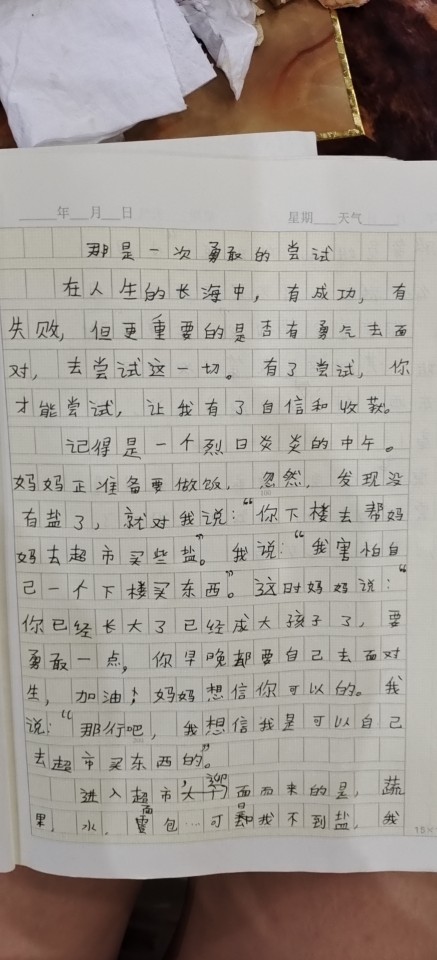 年 月 日 星期 天气
那是一次勇敢的尝试
在人生的长海中，有成功，有
失败，但更重要的是否有勇气去面
对，去尝试这一切。有了尝试，你
才能尝试，让我有了自信和收获。
记得是一个烈日炎炎的中午。
妈妈正准备要做饭，忽然，发现没
有盐了，就对我说：“你下楼去帮妈
妈去超市买些盐”。我说：“我害怕自
己一个下楼买东西”。这时妈妈说：“
你已经长大了已经成大孩子了，要
勇敢一点，你早晚都要自己去面对
生，加油！妈妈想信你可以的。我
说：“那行吧，我想信我是可以自己
去超市买东西的”。
进入超市，迎面而来的是，蔬
果，水，面包…可是我不到盐，我